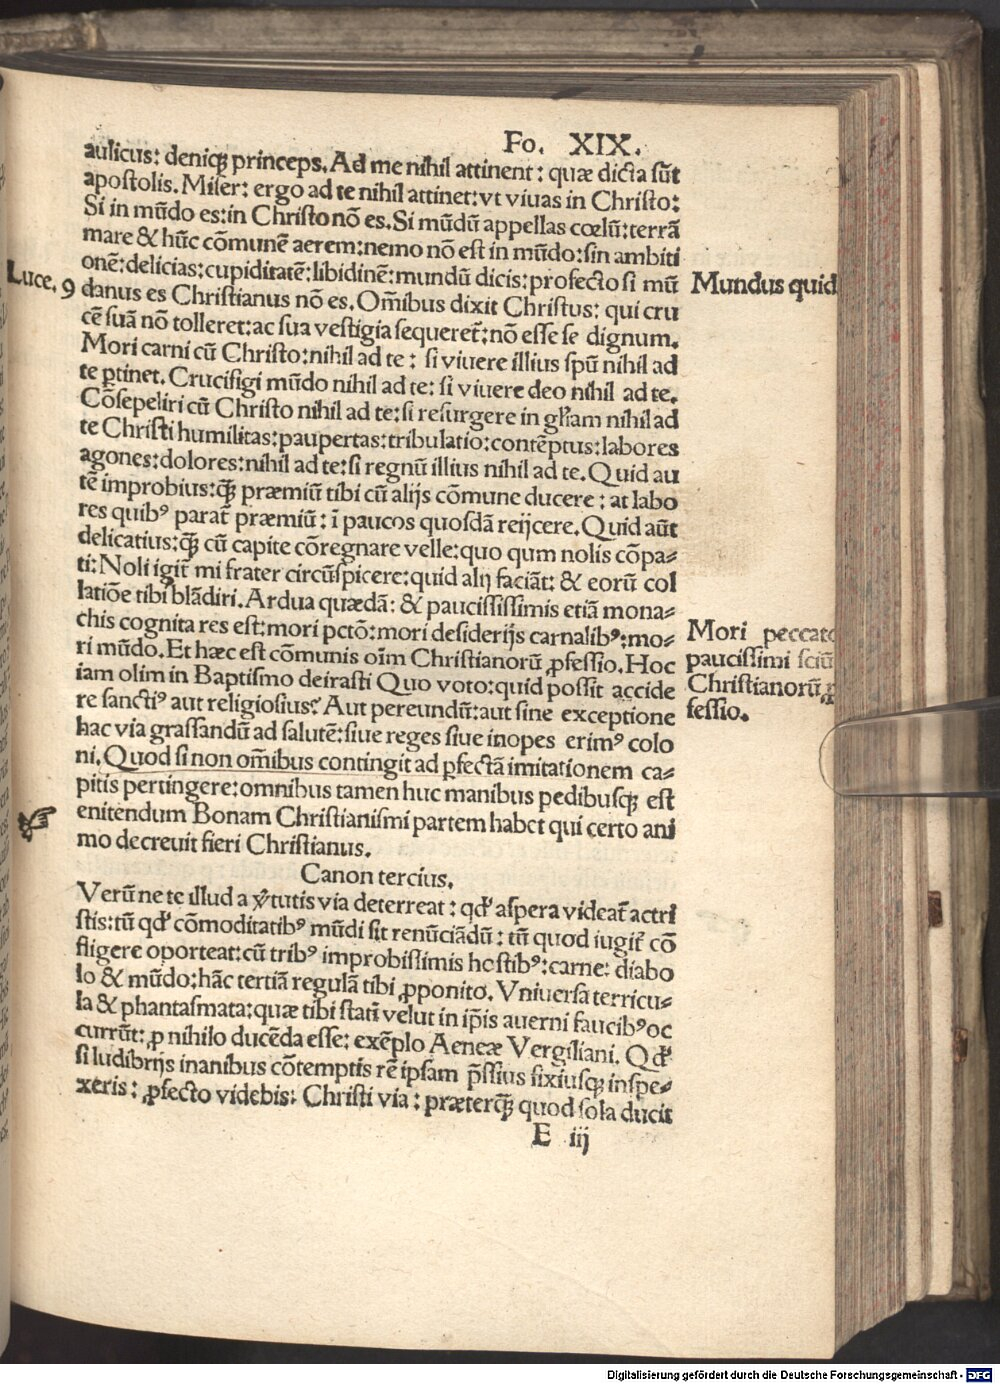 Fo. XIX.
aulicus: deniqꝫ princeps. Ad me nihil attinent: quæ dicta sūt
apostolis. Miser: ergo ad te nihil attinet: vt viuas in Christo:
Si in mūdo es: in Christo nō es. Si mūdū appellas cœlū: terrā
mare & hūc cōmunē aerem: nemo nō est in mūdo: sin ambiti
onē: delicias: cupiditatē: libidinē: mundū dicis: profecto si mū
Mundus quid
Luce. 9
danus es Christianus nō es. Om̄ibus dixit Christus: qui cru
cē suā nō tolleret: ac sua vestigia sequeret᷑: nō esse se dignum.
Mori carni cū Christo: nihil ad te: si viuere illius spū nihil ad
te ꝑtinet. Crucifigi mūdo nihil ad te: si viuere deo nihil ad te.
Cōsepeliri cū Christo nihil ad te: si resurgere in gl̄iam nihil ad
te Christi humilitas: paupertas: tribulatio: contēptus: labores
agones: dolores: nihil ad te: si regnū illius nihil ad te. Quid au
tē improbius: qꝫ̄ præmiū tibi cū alijs cōmune ducere: at labo
res quibꝰ parat᷑ præmiū: ī paucos quosdā reijcere. Quid aūt
delicatius: qꝫ̄ cū capite cōregnare velle: quo qum nolis cōpa⸗
ti: Noli igit᷑ mi frater circūspicere: quid alij faciāt: & eorū col
latiōe tibi blādiri. Ardua quædā: & paucissimis etiā mona⸗
chis cognita res est: mori pctō: mori desiderijs carnalibꝰ: mo⸗
Mori peccato
ri mūdo. Et hæc est cōmunis oīm Christianorū ꝓfessio. Hoc
paucissimi sciū
iam olim in Baptismo deirasti Quo voto: quid possit accide
Christianorū ꝓ
re sanctiꝰ aut religiosius? Aut pereundū: aut sine exceptione
fessio.
hac via grassandū ad salutē: siue reges siue inopes erimꝰ colo
ni. Quod si non om̄ibus contingit ad ꝑfectā imitationem ca⸗
pitis pertingere: omnibus tamen huc manibus pedibusqꝫ est
enitendum Bonam Christianismi partem habet qui certo ani
mo decreuit fieri Christianus.
Canon tercius.
Verū ne te illud a v̄tutis via deterreat: qd̛ aspera videat᷑ ac tri
stis: tū qd̛ cōmoditatibꝰ mūdi sit renūciādū: tū quod iugit᷑ cō
fligere oporteat: cū tribꝰ improbissimis hostibꝰ: carne: diabo
lo & mūdo: hāc tertiā regulā tibi ꝓponito. Vniuersa terricu⸗
la & phantasmata: quæ tibi statī velut in ip̄is auerni faucibꝰ oc
currūt: ꝓ nihilo ducēda esse: exēplo Aeneæ Vergiliani. Qd̛
si ludibrijs inanibus cōtemptis rē ipsam p̄ssius fixiusqꝫ inspe⸗
xeris: ꝓfecto videbis: Christi via: præterqꝫ̄ quod sola ducit
E iij
Digitalisierung gefördert durch die Deutsche Forschungsgemeinschaft - DFG